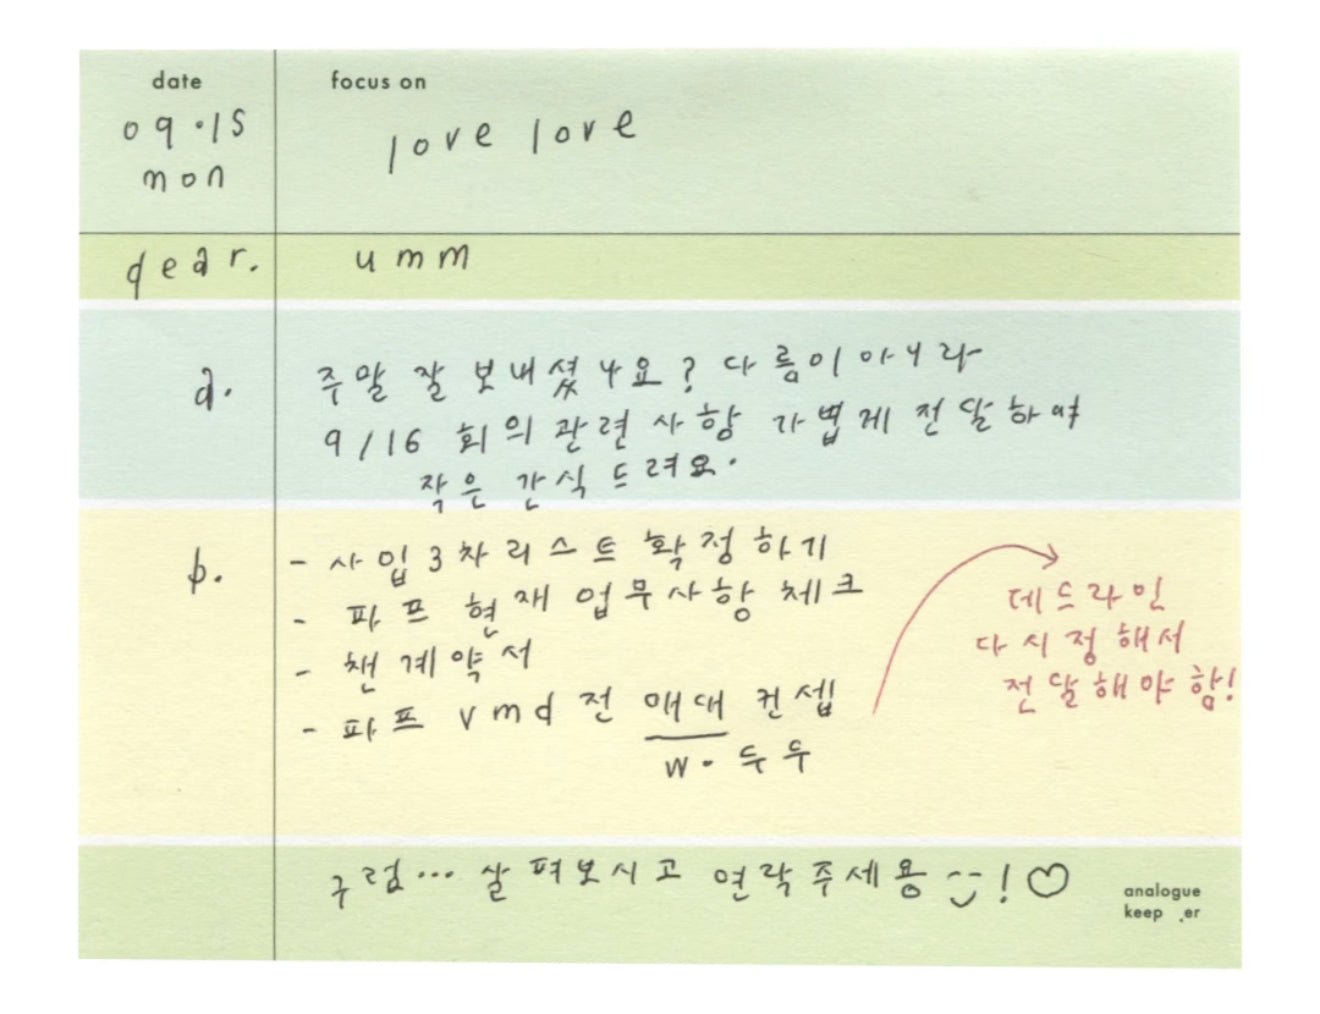 date
focus on
09.15
love love
mon
dear.
umm
a.
주말 잘 보내셨나요? 다름이 아니라
9/16 회의 관련 사항 가볍게 전달하며
작은 간식 드려요.
b.
- 사입 3차 리스트 확정하기
- 파프 현재 업무사항 체크
- 챈 계약서
- 파프 vmd 전 매대 컨셉
w. 두두
데드라인
다시 정해서
전달해야 함!
그럼... 살펴보시고 연락주세용 !♡
analogue
keep .er